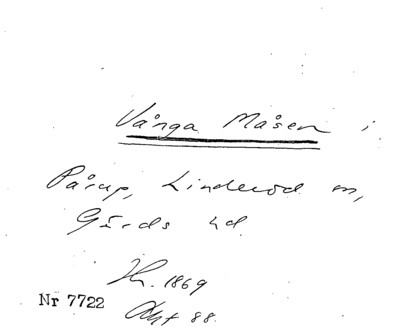 Vånga Måsen i
Pårup, Linderöd m,
Gärds hd
H. 1869
Nr 7722
Okt 88.